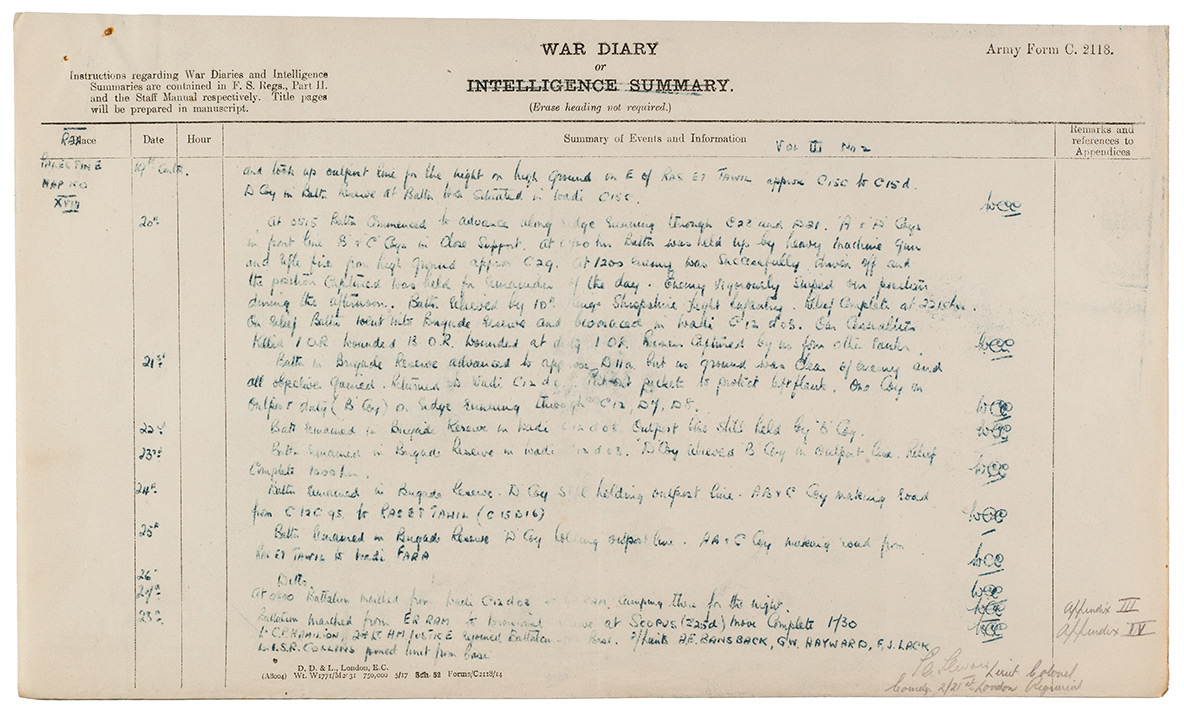 WAR DIARY
or
INTELLIGENCE SUMMARY.
(Erase heading not required.)
Army Form C. 2118.
Instructions regarding War Diaries and Intelligence
Summaries are contained in F. S. Regs., Part II.
and the Staff Manual respectively. Title pages
will be prepared in manuscript.
Place
Date
Hour
Summary of Events and Information
Remarks and
references to
Appendices
Vol III No 2
PALESTINE
MAP NO
XVIII
19th Contd.
and took up outpost line for the night on high ground on E of RAS ET TAWIL approx C15C to C15d.
D Coy in Battn Reserve at Battn situated in wadi C15C.
20th
At 0515 Battn Commenced to advance along ridge running through C22 and D21. "A" & "D" Coys
in front line B & C Coys in Close Support. At hrs Battn was held up by heavy machine gun
and rifle fire from high ground approx C29. At 1200 enemy was successfully driven off and
the position captured was held for remainder of the day. Enemy vigorously sniped our position
during the afternoon. Battn relieved by 10th Kings Shropshire Light Infantry. Relief Complete at 2215 hrs.
On relief Battn went into Brigade Reserve and bivouaced in wadi C12d08. Our Casualties
Killed 1 OR wounded 13 O.R. wounded at duty 1 OR. captured by us
21st
Battn in Brigade Reserve advanced to approx D11a but as ground was clear of enemy and
all objectives gained. Returned to wadi C12d pickets to protect left flank. One Coy on
outpost duty ("B" Coy) on ridge running through C12, D7, D8.
22nd
Battn remained in Brigade Reserve in wadi C12d08. Outpost line still held by "B" Coy.
23rd
Battn remained in Brigade Reserve in wadi C12d08. "D" Coy relieved B Coy in outpost line. Relief
Complete 1000 hrs.
24th
Battn remained in Brigade Reserve. D Coy still holding outpost line. A B & C Coy making road
from C12C95 to RAS ET TAWIL (C15D16)
25th
Battn remained in Brigade Reserve "D" Coy holding outpost line. A B & C Coy making road from
RAS ET TAWIL to Wadi FARA
26th
Ditto
27th
At 0900 Battalion marched from wadi C12d08 to Camping there for the night.
28th
Battalion marched from ER RAM to at SCOPUS (Z25d) move Complete 1130
Lt C.P. HAMILTON, 2nd Lt H.M. JUSTICE rejoined Battalion from base. 2/Lieuts A.E. BANSBACK, G.W. HAYWARD, F.J. LACK,
L.I.S.R. COLLINS joined unit from base
Appendix III
Appendix IV
D. D. & L., London, E.C.
(A8004) Wt. W1771/M2031 750,000 5/17 Sch. 52 Forms/C2118/14
Lieut Colonel
Comdg. 2/21st London Regiment